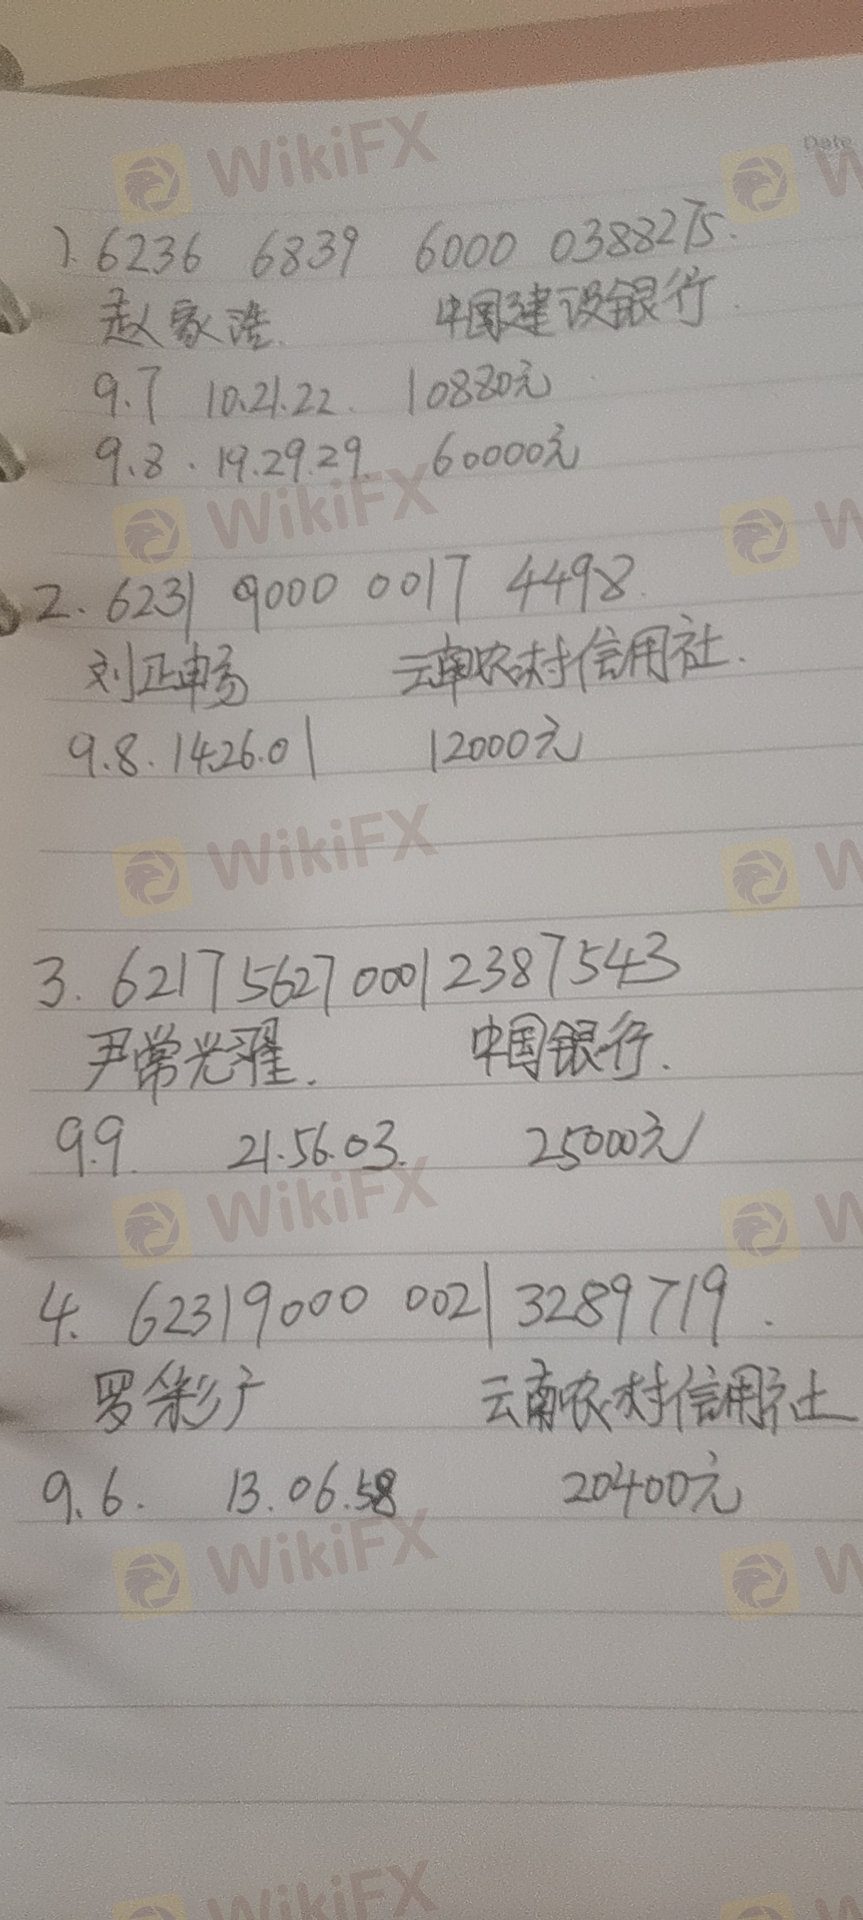 Date
1. 6236 6839 6000 0388275.
赵家浩. 中国建设银行.
9.7 10.21.22. 10880元
9.8. 19.29.29. 60000元
2. 6231 9000 0017 4498.
刘正畅 云南农村信用社.
9.8. 14.26.01 12000元
3. 6217 5627 0001 2387543
尹常光耀. 中国银行.
9.9. 21.56.03. 25000元
4. 6231 9000 0021 3289719.
罗彩广 云南农村信用社
9.6. 13.06.58 20400元
WikiFX
WikiFX
WikiFX
WikiFX
WikiFX
WikiFX